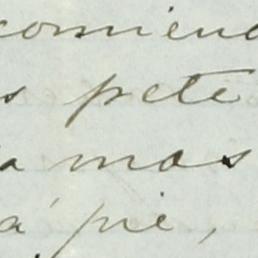 comien
s pete
a mas
á pie,